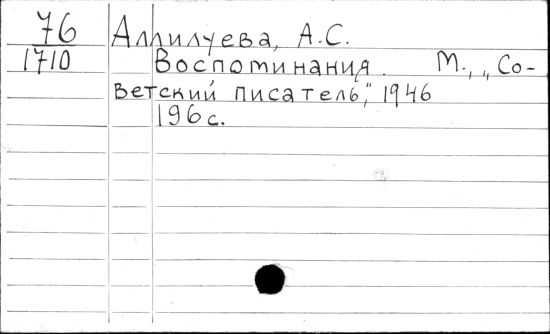 76 Аллилуева, А.С.
1710 Воспоминания. М., „Со-
ветский писатель,” 1946
196 с.